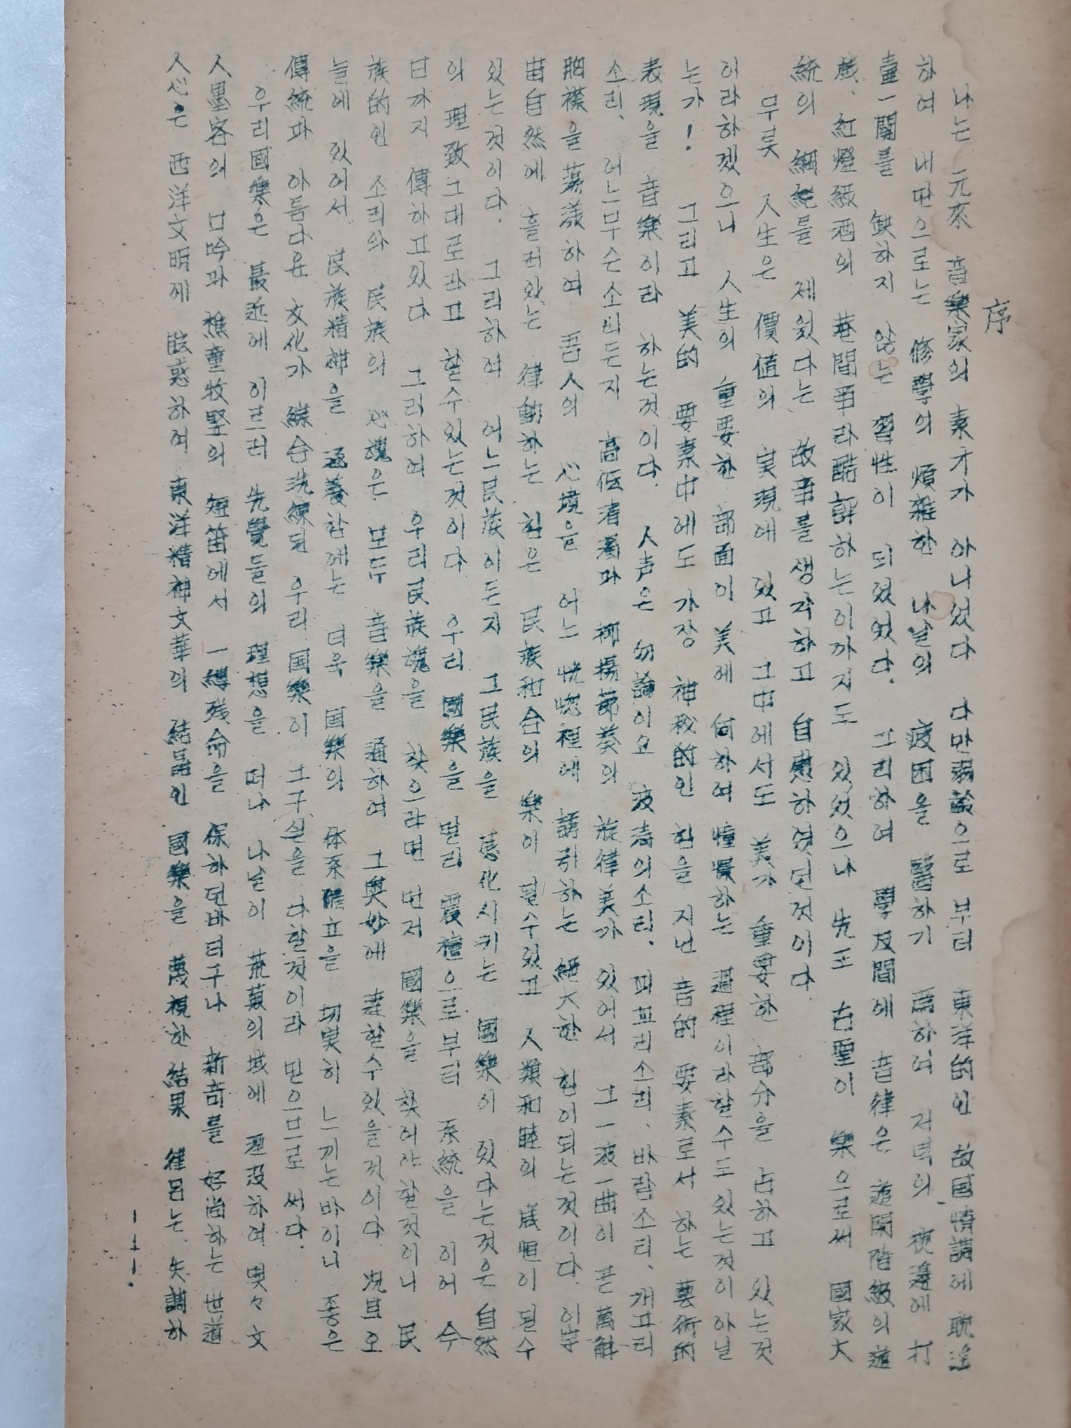 序
나는 元來 音樂家의 素才가 아니었다 다만 으로부터 東洋的인 故國情調에 耽淫
하여 내딴으로는 修學의 煩雜한 나날의 疲困을 醫하기 爲하여 저녁의 夜邊에 打
一関을 缺하지 않는 習性이 되었었다. 그리하여 學友間에 音律은 遊閑階級의 遊
戱、紅燈綠酒의 巷間事라 酷評하는이까지도 있었으나 先王 古聖이 樂으로써 國家大
統의 綱紀를 세웠다는 故事를 생각하고 自慰하였던것이다.
무릇 人生은 價値의 実現에 있고 그中에서도 美가 重要한 部分을 占하고 있는것
이라하겠으니 人生의 重要한 部面이 美에 向하여 憧憬하는 過程이라할수도 있는것이 아닐
는가! 그리고 美的 要素中에도 가장 神秘的인 힘을 지닌 音的 要素로서 하는 藝術的
表現을 音樂이라 하는것이다. 人声은 勿論이요 波濤의소리、꾀꼬리소리、바람소리、개고리
소리、어느무슨소리든지 高低淸濁과 抑揚節奏의 旋律美가 있어서 그一波一曲이 곧 萬解
胸襟을 蕩漾하여 吾人의 心境을 어느 恍惚裡에 誘引하는 絕大한 힘이되는것이다. 이宇
宙自然에 흘러있는 律動하는 힘은 民族和合의 樂이 될수있고 人類和睦의 咸恒이 될수
있는것이다. 그리하여 어느民族이든지 그民族을 感化시키는 國樂이 있다는것은 自然
의 理致그대로라고 할수있는것이다 우리 國樂을 멀리 震檀으로부터 系統을 이어 今
日까지 傳하고있다 그리하여 우리民族魂을 찾으라면 먼저 國樂을 찾어야할것이니 民
族的인 소리와 民族의 心魂은 모두 音樂을 通하여 그奧妙에 達할수있을것이다 况且오
늘에 있어서 民族精神을 涵養함에는 더욱 国樂의 体系確立을 切実히 느끼는바이니 좋은
傳統과 아름다운 文化가 綜合洗練된 우리国樂이 그구실을 다할것이라 믿으므로 써다.
우리國樂은 最近에 이르러 先覺들의 理想을 떠나 나날이 荒蕪의域에 埋没하여 몇々 文
人墨客의 口吟과 樵童牧竪의 短笛에서 一縷残命을 保하던바터구나 新奇를 好尚하는 世道
人心은 西洋文明에 眩惑하여 東洋精神文華의 結晶인 國樂을 蔑視한結果 律呂는 失調하
—1—